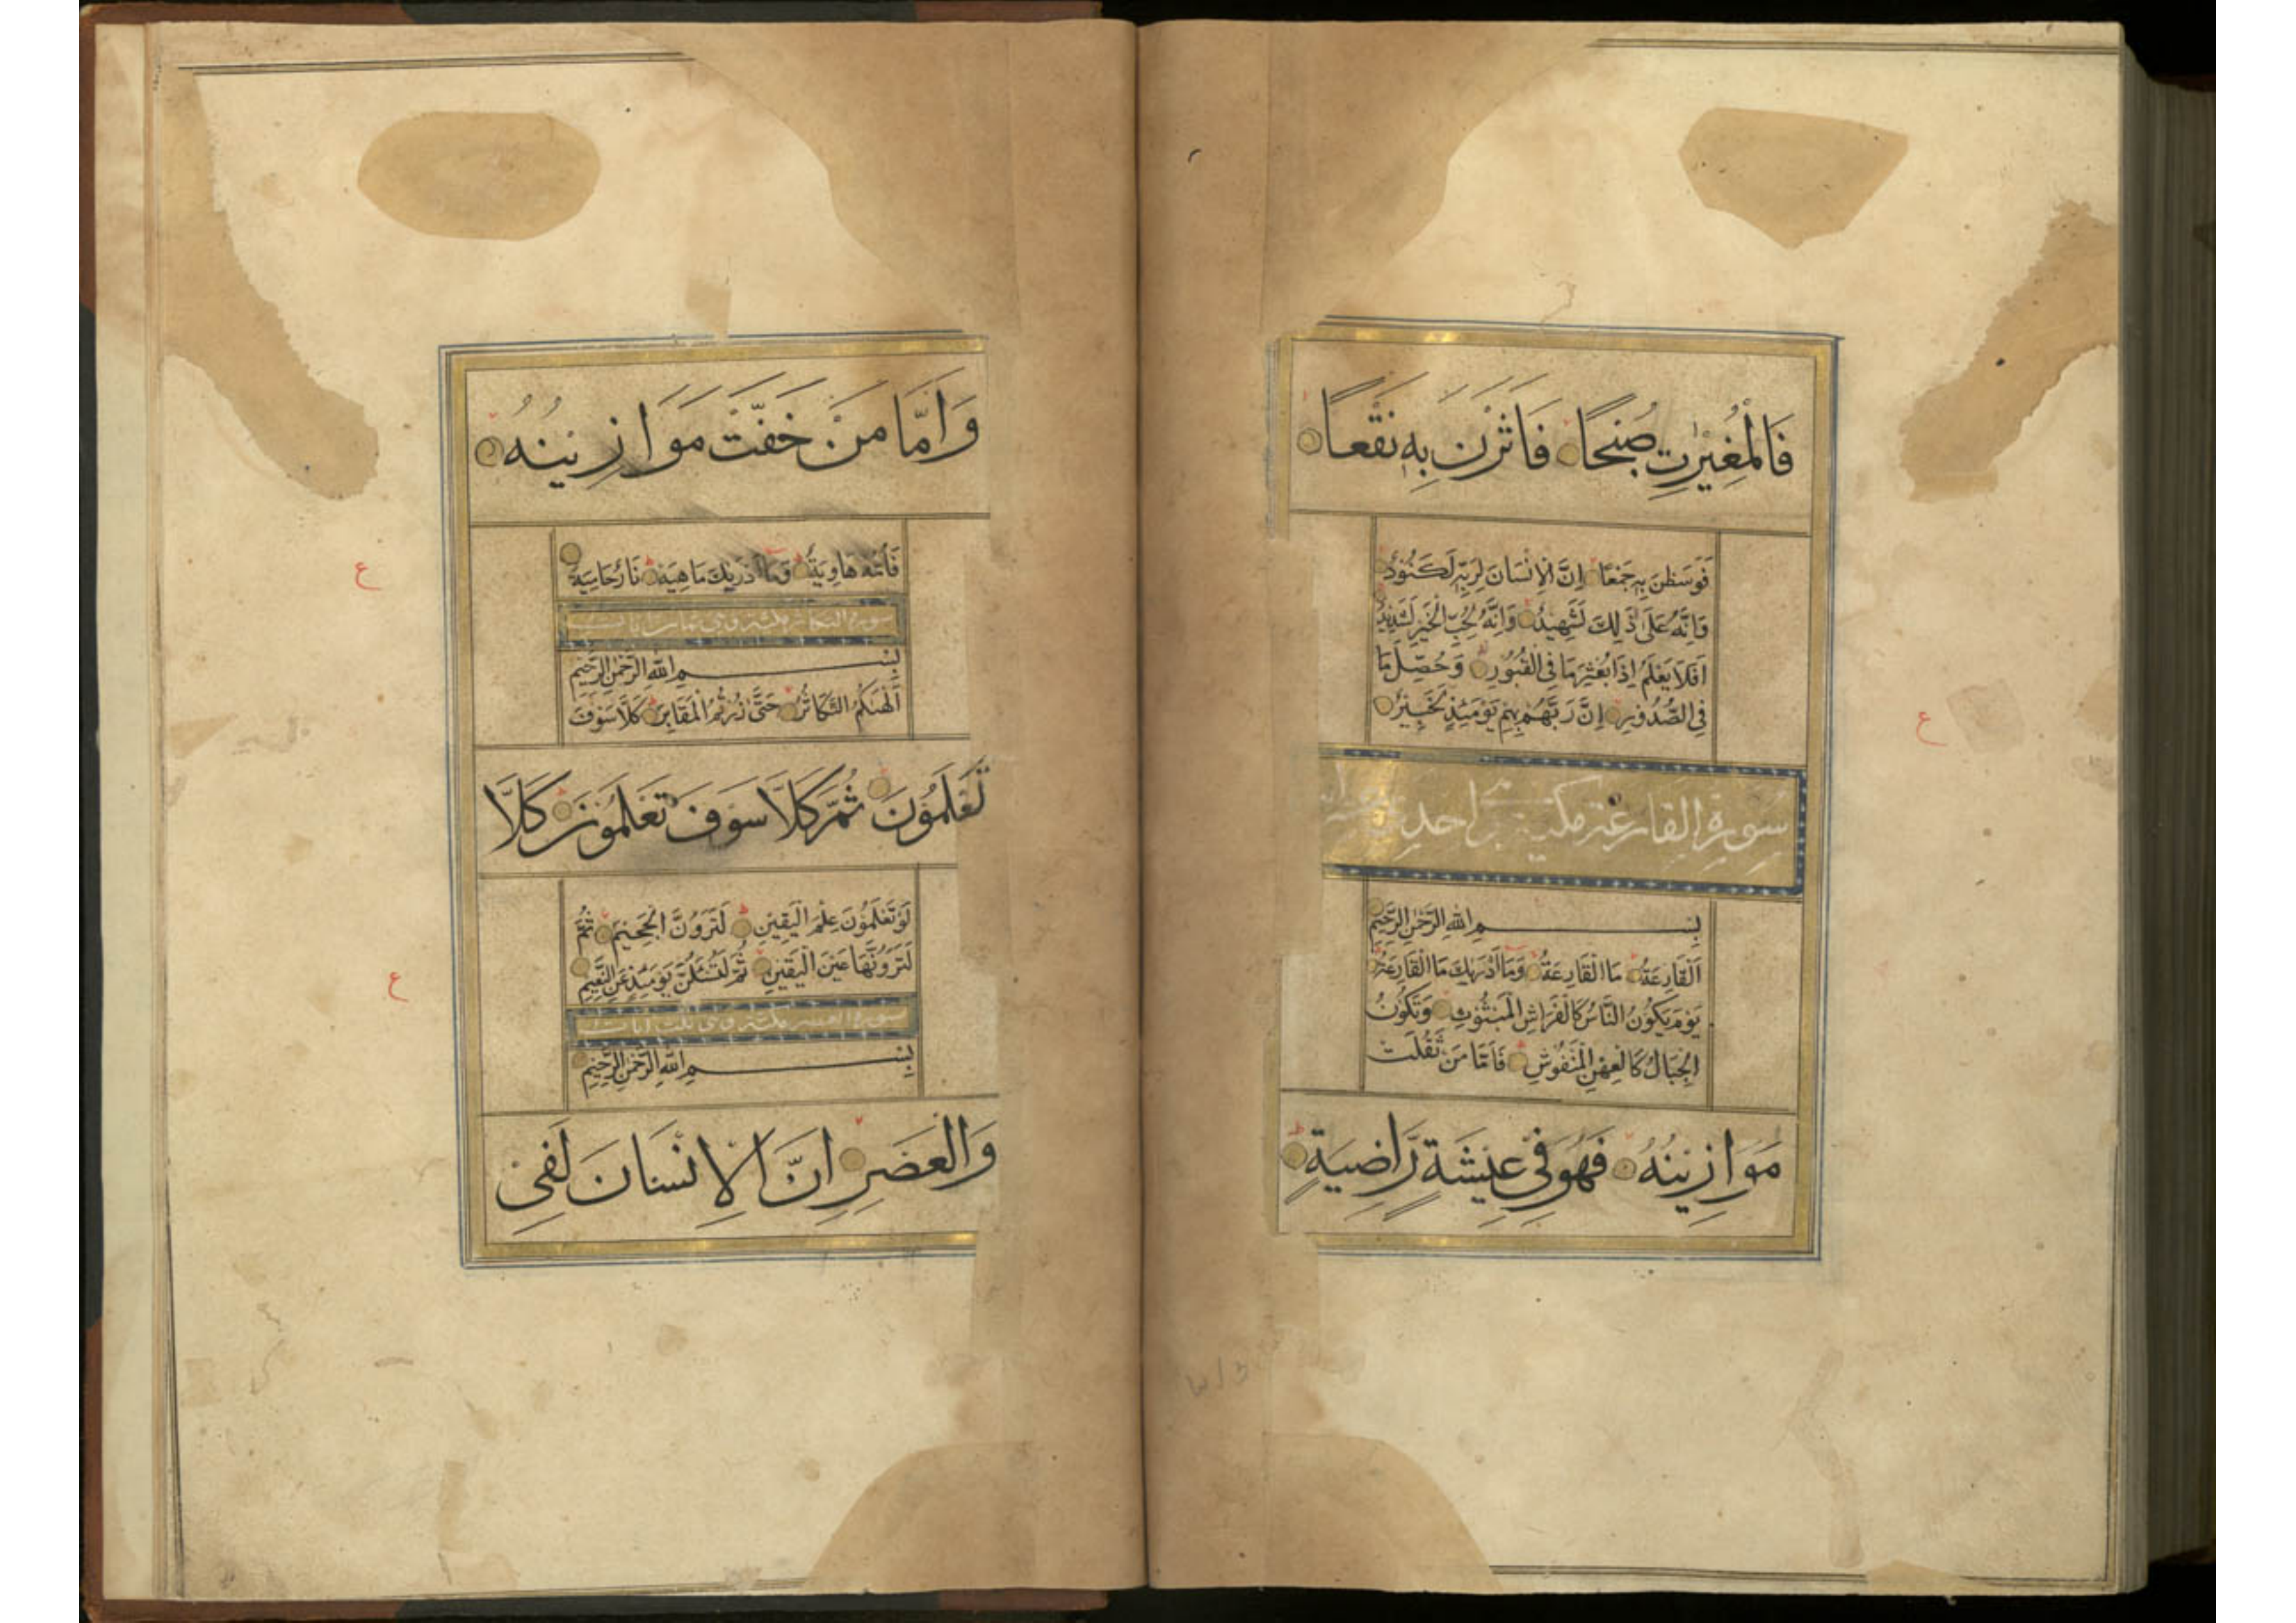 فَالْمُغِيْرٰتِ صُبْحًا فَاَثَرْنَ بِهٖ نَقْعًا
فَوَسَطْنَ بِهٖ جَمْعًا اِنَّ الْاِنْسَانَ لِرَبِّهٖ لَكَنُوْدٌ
وَاِنَّهُ عَلٰى ذٰلِكَ لَشَهِيْدٌ وَاِنَّهُ لِحُبِّ الْخَيْرِ لَشَدِيْدٌ
اَفَلَا يَعْلَمُ اِذَا بُعْثِرَ مَا فِى الْقُبُوْرِ وَحُصِّلَ مَا
فِى الصُّدُوْرِ اِنَّ رَبَّهُمْ بِهِمْ يَوْمَئِذٍ لَخَبِيْرٌ
سورة القارعة مكية احدى
بِسْمِ اللّٰهِ الرَّحْمٰنِ الرَّحِيْمِ
اَلْقَارِعَةُ مَا الْقَارِعَةُ وَمَا اَدْرٰىكَ مَا الْقَارِعَةُ
يَوْمَ يَكُوْنُ النَّاسُ كَالْفَرَاشِ الْمَبْثُوْثِ وَتَكُوْنُ
الْجِبَالُ كَالْعِهْنِ الْمَنْفُوْشِ فَاَمَّا مَنْ ثَقُلَتْ
مَوَازِيْنُهُ فَهُوَ فِيْ عِيْشَةٍ رَّاضِيَةٍ
ع
وَاَمَّا مَنْ خَفَّتْ مَوَازِيْنُهُ
فَاُمُّهُ هَاوِيَةٌ وَمَا اَدْرٰىكَ مَاهِيَهْ نَارٌ حَامِيَةٌ
ع
سورة التكاثر مكية وهى ثمان ايات
بِسْمِ اللّٰهِ الرَّحْمٰنِ الرَّحِيْمِ
اَلْهٰىكُمُ التَّكَاثُرُ حَتّٰى زُرْتُمُ الْمَقَابِرَ كَلَّا سَوْفَ
تَعْلَمُوْنَ ثُمَّ كَلَّا سَوْفَ تَعْلَمُوْنَ كَلَّا
لَوْ تَعْلَمُوْنَ عِلْمَ الْيَقِيْنِ لَتَرَوُنَّ الْجَحِيْمَ ثُمَّ
لَتَرَوُنَّهَا عَيْنَ الْيَقِيْنِ ثُمَّ لَتُسْئَلُنَّ يَوْمَئِذٍ عَنِ النَّعِيْمِ
ع
سورة العصر مكية وهى ثلث ايات
بِسْمِ اللّٰهِ الرَّحْمٰنِ الرَّحِيْمِ
وَالْعَصْرِ اِنَّ الْاِنْسَانَ لَفِيْ